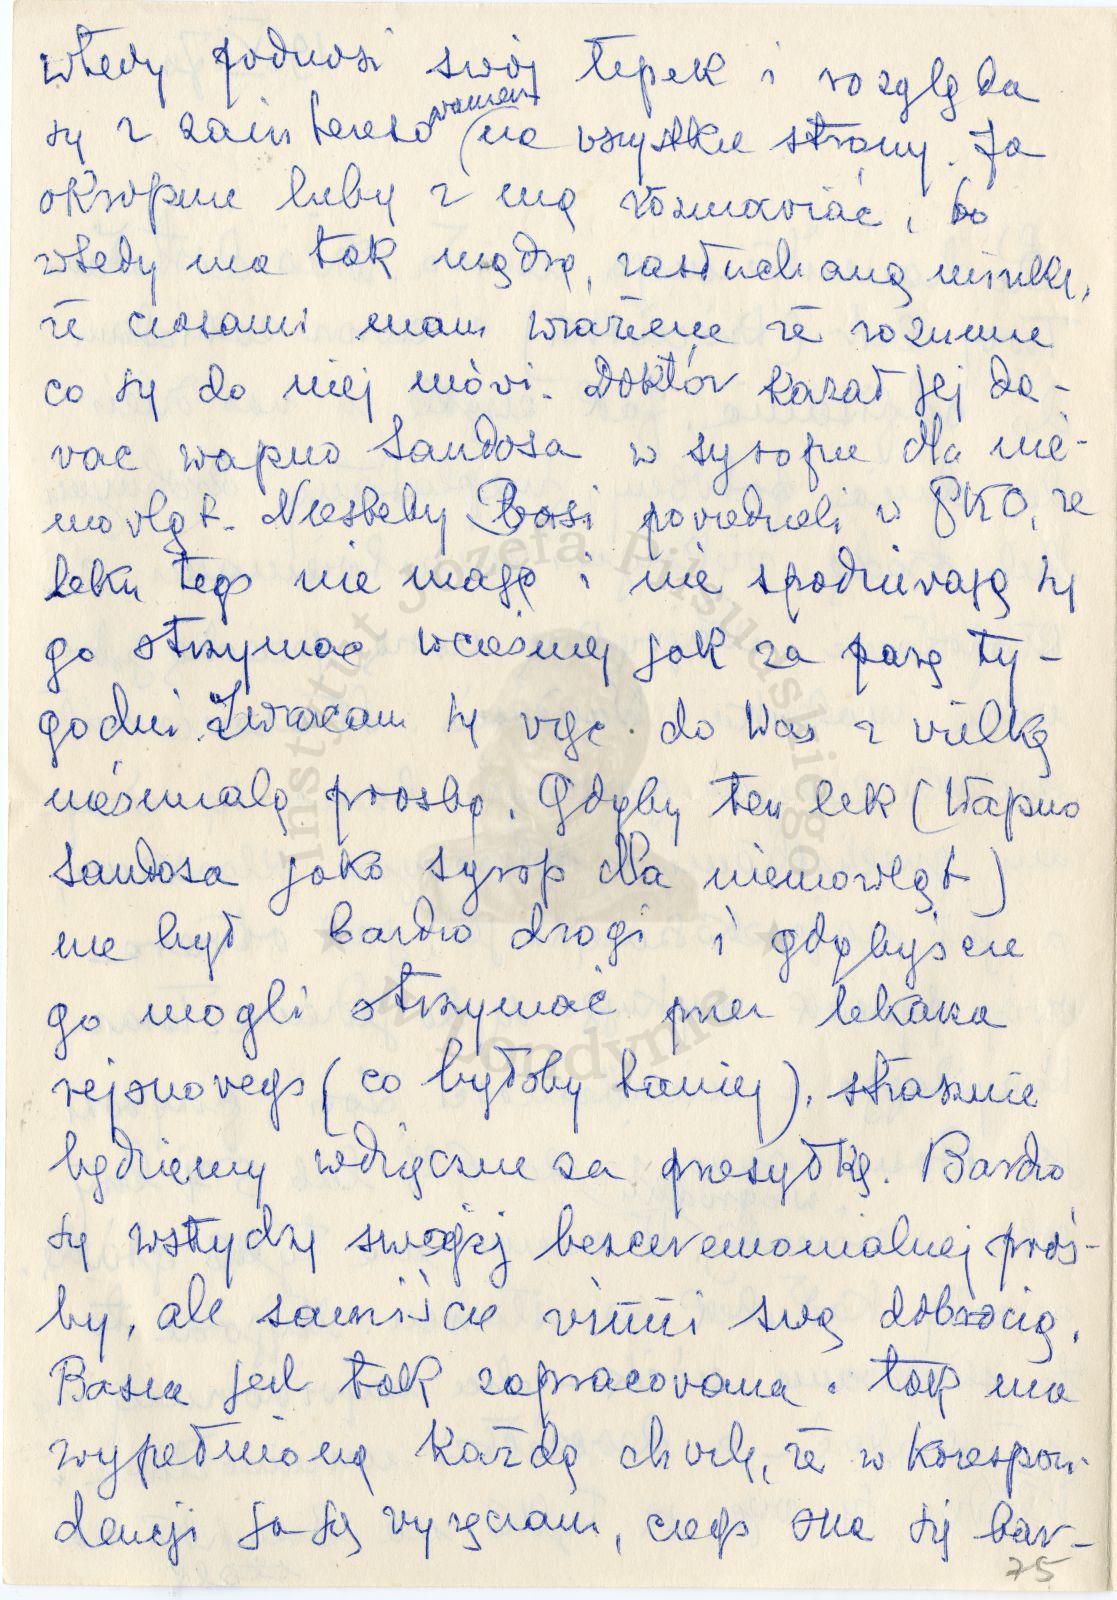 wtedy podnosi swój łepek i rozgląda
się z zainteresowaniem na wszystkie strony. Ja
okropnie lubię z nią rozmawiać, bo
wtedy ma tak mądrą, zasłuchaną minkę,
że czasami mam wrażenie że rozumie
co się do niej mówi. Doktór kazał jej da-
wać wapno Sandosa w syropie dla nie-
mowląt. Niestety Basi powiedzieli w PKO, że
leku tego nie mają i nie spodziewają się
go otrzymać wcześniej jak za parę ty-
godni. Zwracam się więc do Was z wielką
nieśmiałą prośbą. Gdyby ten lek (Wapno
Sandosa jako syrop dla niemowląt)
nie był bardzo drogi i gdybyście
go mogli otrzymać przez lekarza
rejonowego (co byłoby taniej), strasznie
będziemy wdzięczne za przesyłkę. Bardzo
się wstydzę swojej bezceremonialnej proś-
by, ale samiście winni swą dobrocią.
Basia jest tak zapracowana i tak ma
wypełnioną każdą chwilę, że w korespon-
dencji ja ją wyręczam, czego ona się bar-
75
Instytut Józefa Piłsudskiego
w Londynie